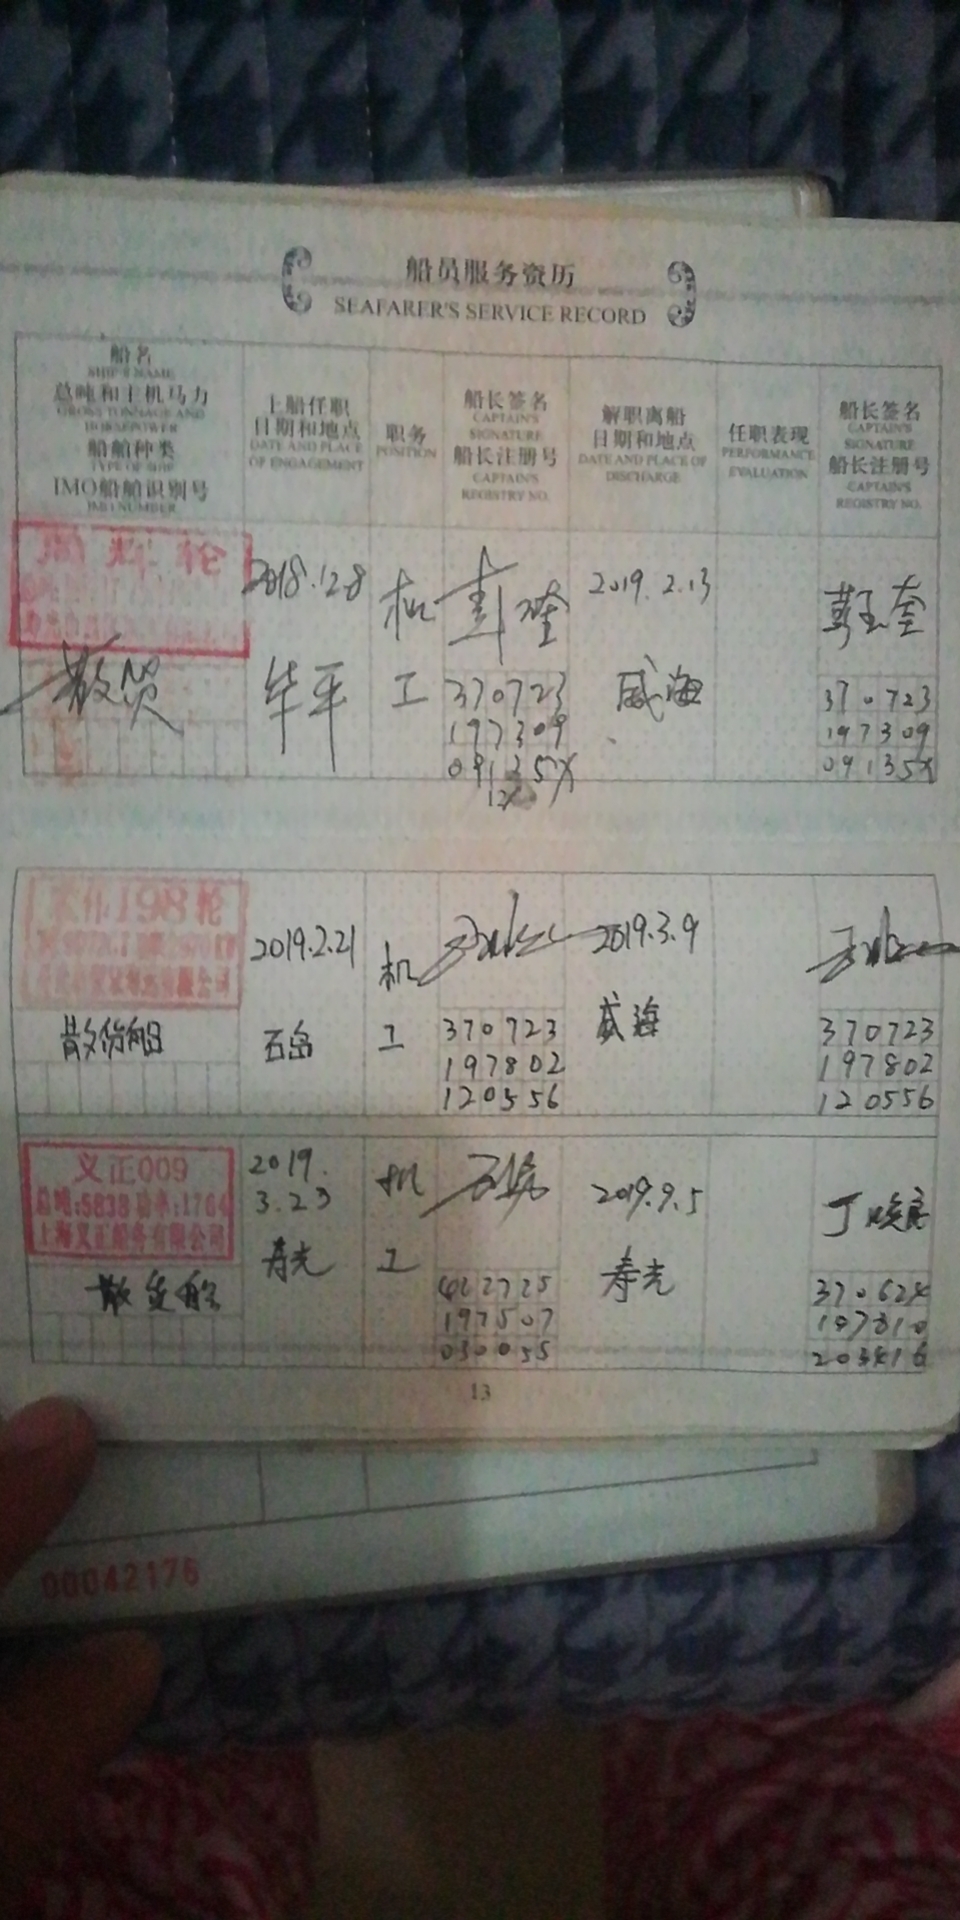 船员服务资历
SEAFARER'S SERVICE RECORD
船名
SHIP'S NAME
总吨和主机马力
GROSS TONNAGE AND
HORSEPOWER
船舶种类
TYPE OF SHIP
IMO船舶识别号
IMO NUMBER
上船任职
日期和地点
DATE AND PLACE
OF ENGAGEMENT
职务
POSITION
船长签名
CAPTAIN'S
SIGNATURE
船长注册号
CAPTAIN'S
REGISTRY NO.
解职离船
日期和地点
DATE AND PLACE OF
DISCHARGE
任职表现
PERFORMANCE
EVALUATION
船长签名
CAPTAIN'S
SIGNATURE
船长注册号
CAPTAIN'S
REGISTRY NO.
轮
散货
2018.12.8
华平
机
工
370723
197309
2019.2.13
威海
370723
197309
09135X
198轮
散货船
2019.2.21
石岛
机
工
370723
197802
120556
2019.3.9
威海
370723
197802
120556
义正009
总吨:5838 功率:1764
上海义正船务有限公司
散货船
2019.
3.23
寿光
机
工
197507
030055
2019.9.5
寿光
13
00042176